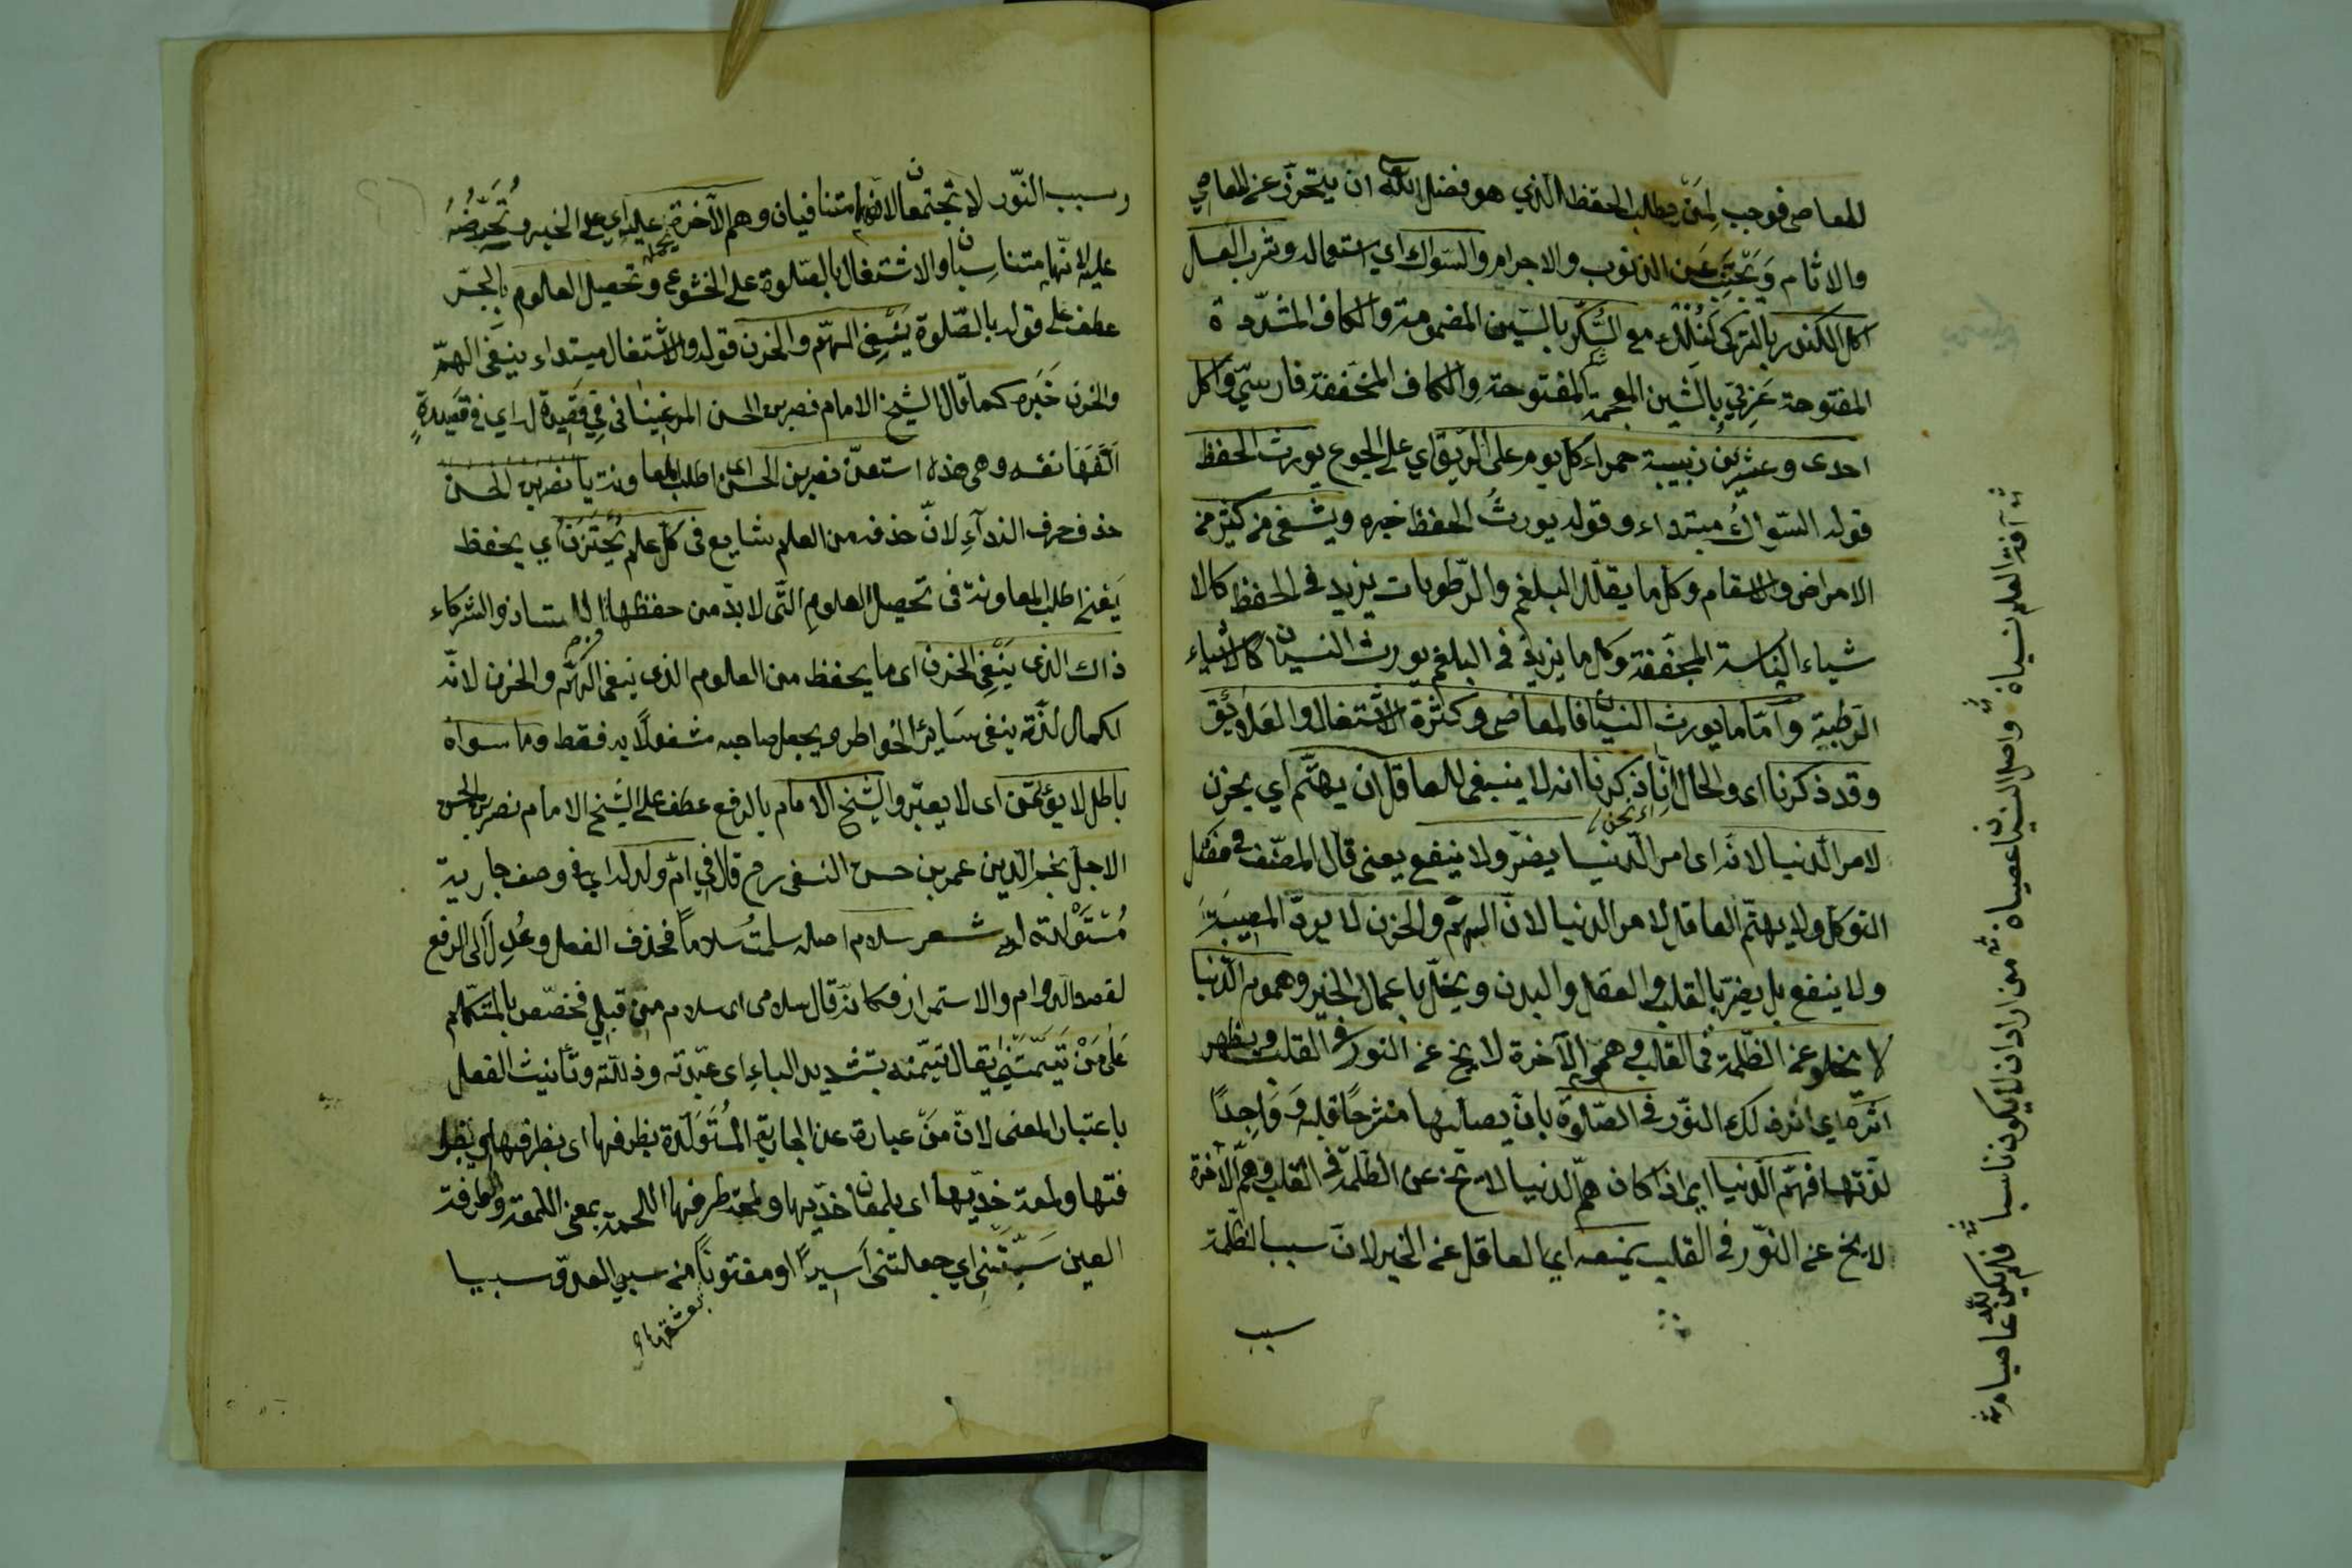 للمعاصى فوجب لمن يطلب الحفظ الذي هو فضل الله ان يتحرز عن المعاصي
والاثام وَيجتنب عن الذنوب والاجرام والسّواك اي استعماله وشرب العسل
اكل الكندر بالتركى مع السُّكّر بالسّين المضمومة والكاف المشدّدة
المفتوحة عَرَبيّ بالشين المعجمة المفتوحة والكاف المخففة فارسيّ واكل
احدى وعشرين زبيبة حمراء كل يوم على الرّيق اي على الجوع يورث الحفظ
قوله السّواكُ مبتداء وقوله يورثُ الحفظ خبره ويشفى من كثير من
الامراض والاسقام وكل ما يقلّل البلغم والرّطوبات يزيد في الحفظ كالا
شياء اليابسة المجففة وكل ما يزيد في البلغم يورث النسيان كالاشياء
الرّطبة وامّا ما يورث النسيان فالمعاصى وكثرة الاشتغال والعلائق
وقد ذكرنا اى والحال انّا ذكرنا انه لا ينبغى للعاقل ان يهتّم اي يحزن
لامر الدنيا لانه اى امر الدّنيا يضرّ ولا ينفع يعنى قال المصنّف في فصل
التوكل ولا يهتمّ العاقل لامر الدنيا لانّ الهمّ والحزن لا يردّ المصيبة
ولا ينفع بل يضرّ بالقلب والعقل والبدن ويخلّ باعمال الخير وهموم الدّنيا
لا يخلو عن الظّلمة في القلب وهمّ الآخرة لا يخ عن النور في القلب ويظهر
اثره اي اثر ذلك النّور في الصّلوة بان يصلّيها منشرحًا قلبه وَوَاجدًا
لذّتها فهمّ الدّنيا اي اذا كان همّ الدنيا لا يخ عن الظّلمة في القلب وهمّ الآخرة
لا يخ عن النّور في القلب يمنعه اي العاقل عن الخير لانّ سبب الظّلمة
سبب
آفة العلم نسيانه واصل النسيان عصيانه من اراد ان لا يكون ناسيا فلم يكن لله عاصيا
وسبب النّور لا يجتمعان لانهما متنافيان وهمّ الآخرة يحمله عليه اي على الخير ويُحَرِّضُهُ
عليه لانّهما متناسبان والاشتغال بالصّلوة على الخشوع وتحصيل العلوم بالجرّ
عطف على قوله بالصّلوة يَنْفِى الهمّ والحزن قوله والاشتغال مبتداء ينفى الهمّ
والحزن خَبَره كما قال الشيخ الامام نصر بن الحسن المرغينانى في قصيدة له اي في قصيدةٍ
الّفها نفسه وهى هذه استعن نصر بن الحسن اى اطلب المعاونة يا نصر بن الحسن
حذف حرف الندآءِ لانّ حذفه من العلم شايع في كلّ علم يُحْتَزَنُ اي يحفظ
يَعْنى اطلب المعاونة فى تحصيل العلوم التى لا بدّ من حفظها والشركاء
ذاك الذى يَنْفِى الحزن اى ما يحفظ من العلوم الذى ينفى الهمّ والحزن لانّه
لكمال لذّته ينفى سَاير الخواطر ويجعل صاحبه مشغولًا به فقط وما سواه
باطل لا يؤتمن اى لا يعتبر والشّيخ الامام بالرفع عطف على الشيخ الامام نصر بن الحسن
الاجلّ نجم الدّين عمر بن حسن النسفى رح قال في امّ ولد له اي في وصف جارية
مُسْتَوْلدة له شعر سلام اصله سلمتُ سلاماً فحذف الفعل وعُدِلَ الى الرفع
لقصد الدوام والاستمرار فكانه قال سلامى اى سلام من قبلي فخصّص بالمتكلم
عَلى مَنْ تيّمتْنِى يقال تيّمته بتشديد الياءِ اى عبّدته وذلّلته وتأنيث الفعل
باعتبار المعنى لانّ مَنْ عبارة عن الجارية المُسْتَوْلَدة بظرفها اى بظرافتها
فتها ولمعة خدّيها اى بلمعان خدّيها ولمحة طرفها اللمحة بمعنى اللمعة والطرفة
العين سَبَتْنِى اي جعلتنى اسيرًا او مفتونًا من سبي العدوّ سبيا